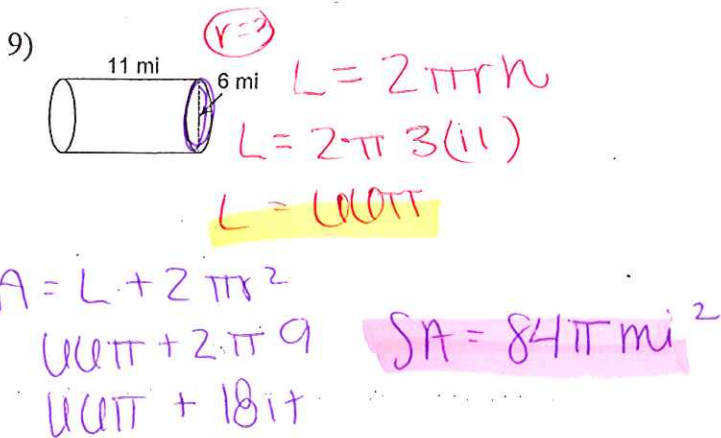 9)
r=3
11 mi
6 mi
L = 2πrh
L = 2π 3(11)
L = 66π
A = L + 2πr²
66π + 2π 9
66π + 18π
SA = 84π mi²